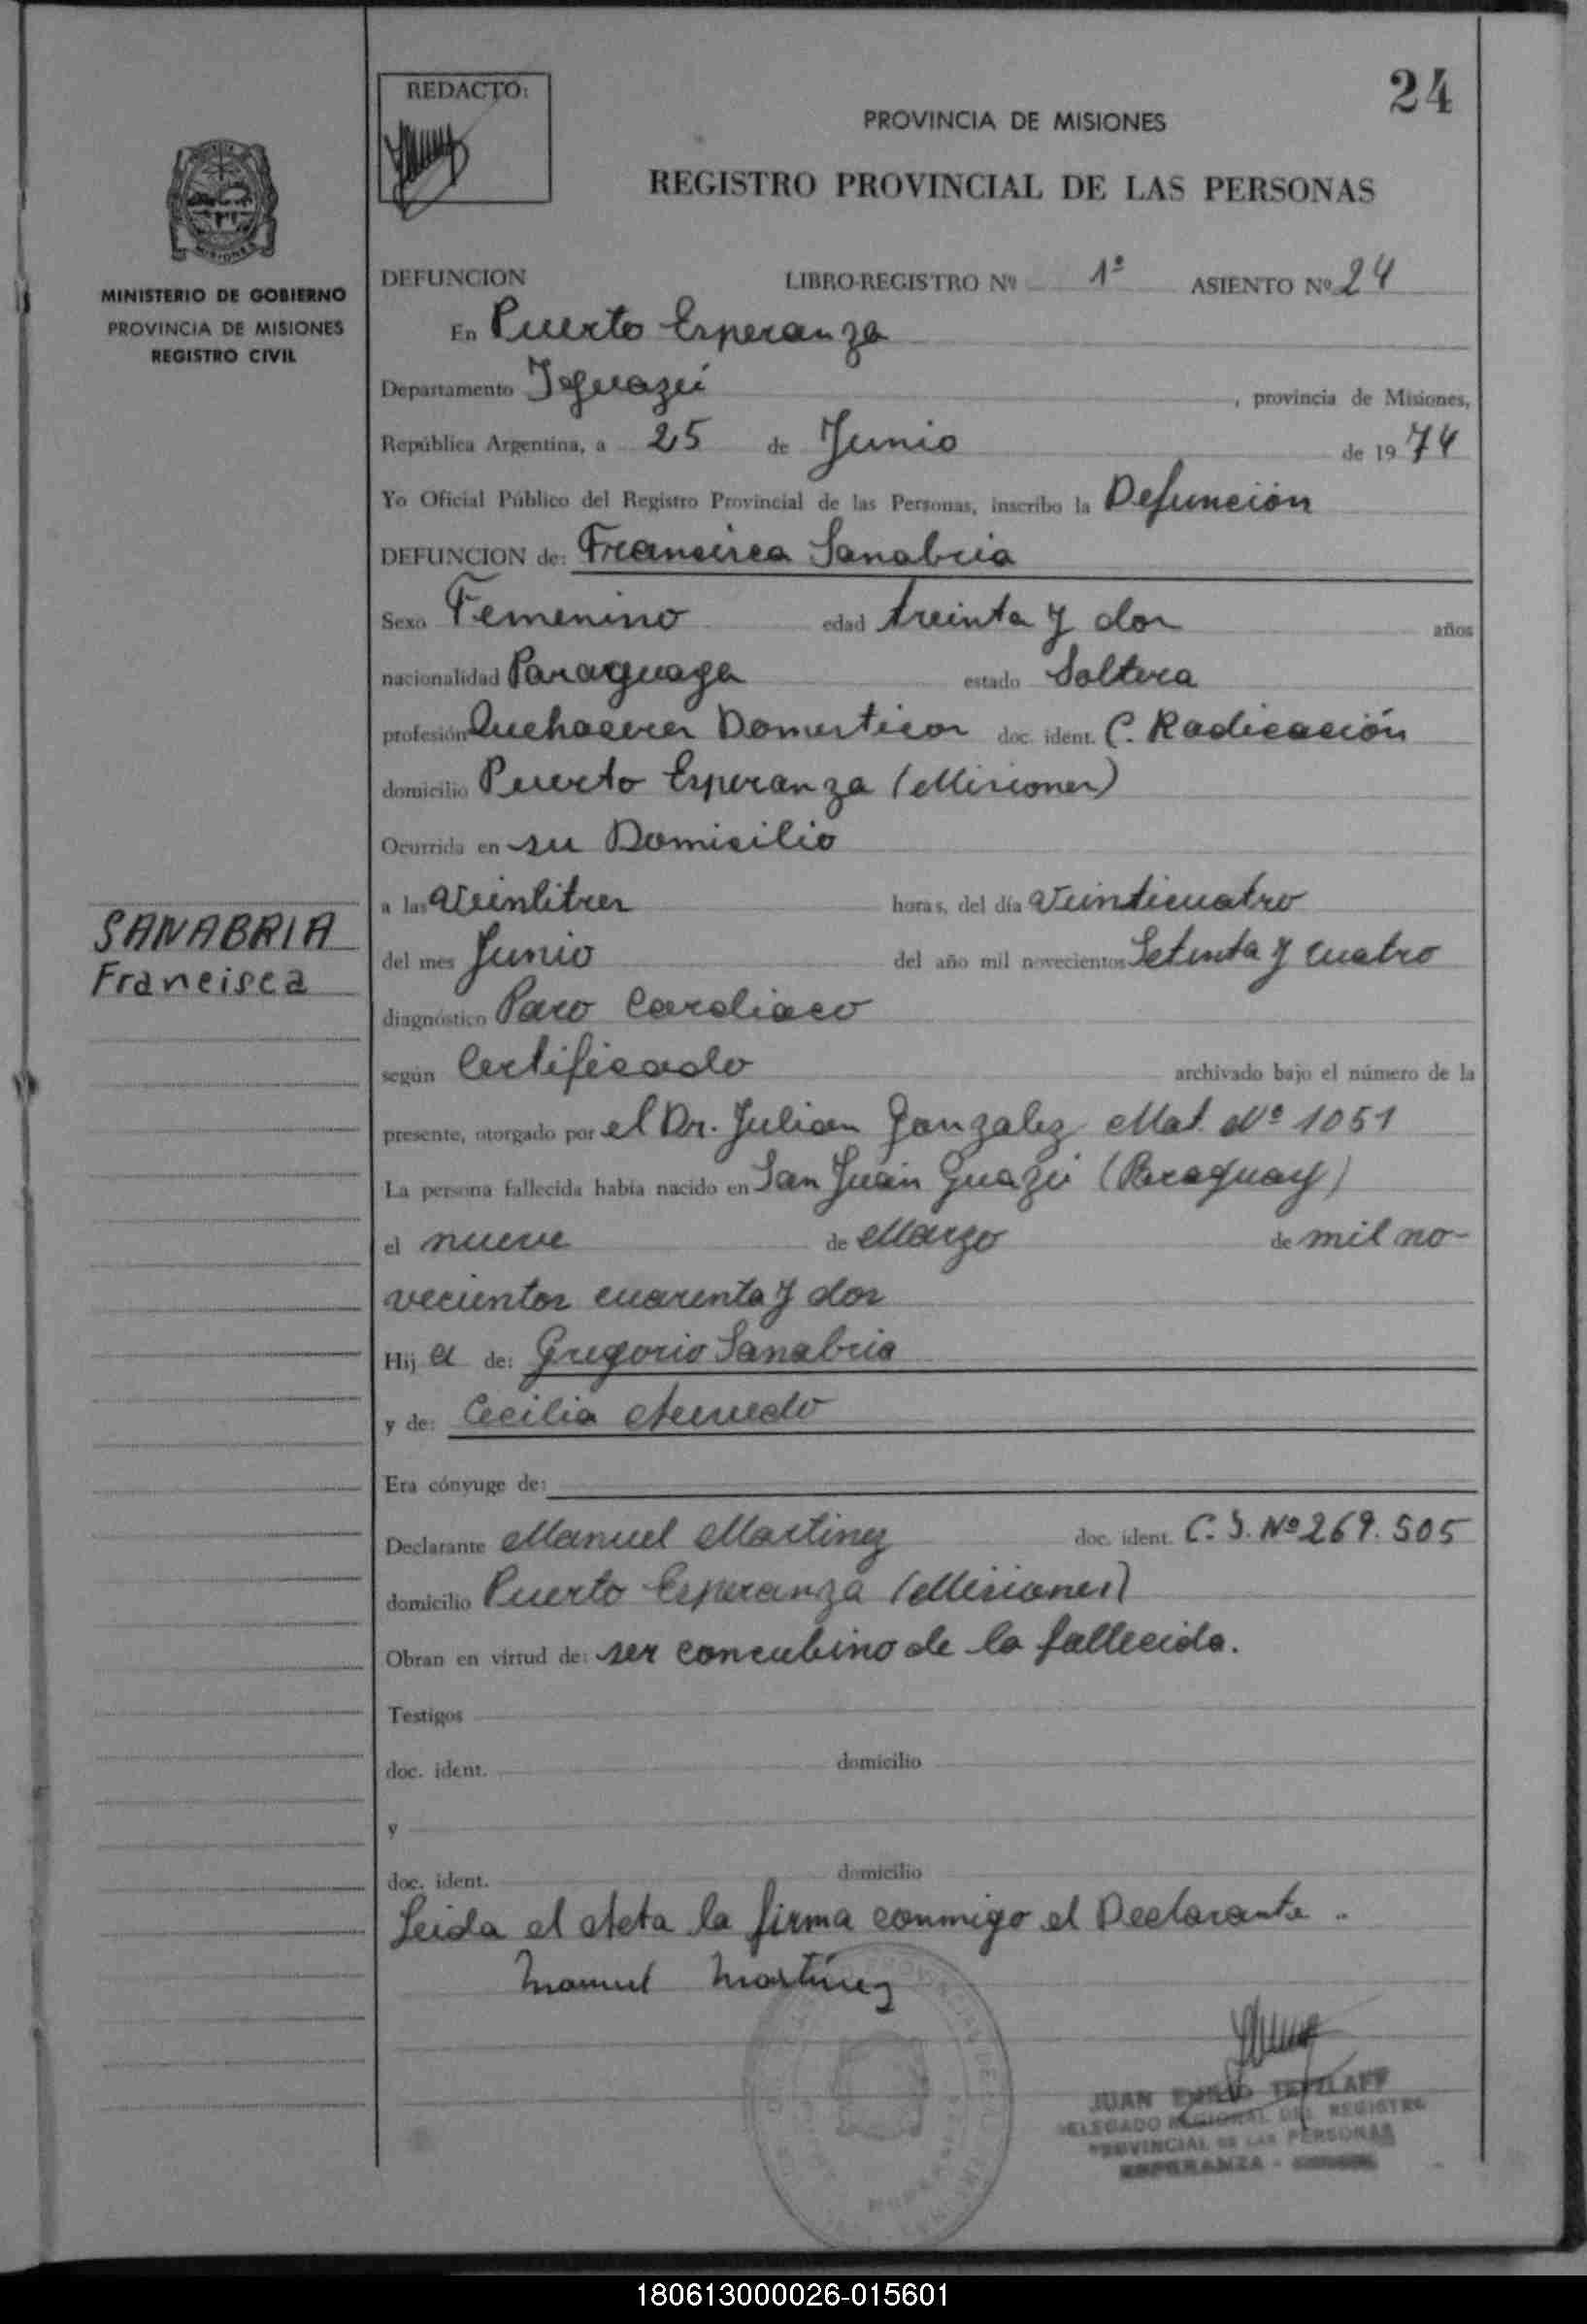 24
REDACTO:
PROVINCIA DE MISIONES
REGISTRO PROVINCIAL DE LAS PERSONAS
MINISTERIO DE GOBIERNO
PROVINCIA DE MISIONES
REGISTRO CIVIL
DEFUNCION LIBRO-REGISTRO Nº 1º ASIENTO Nº 24
En Puerto Esperanza
Departamento Iguazú, provincia de Misiones,
República Argentina, a 25 de Junio de 1974
Yo Oficial Público del Registro Provincial de las Personas, inscribo la Defunción
DEFUNCION de: Francisca Sanabria
Sexo Femenino edad treinta y dos años
nacionalidad Paraguaya estado Soltera
profesión Quehaceres Domesticos doc. ident. C. Radicación
domicilio Puerto Esperanza (Misiones)
Ocurrida en su Domicilio
a las Veintitres horas, del día Veinticuatro
SANABRIA
Francisca
del mes Junio del año mil novecientos Setenta y cuatro
diagnóstico Paro Cardiaco
según Certificado archivado bajo el número de la
presente, otorgado por el Dr. Julian Gonzalez Mat. Nº 1051
La persona fallecida había nacido en San Juan Guazú (Paraguay)
el nueve de Marzo de mil no-
vecientos cuarenta y dos
Hija de: Gregorio Sanabria
y de: Cecilia
Era cónyuge de:
Declarante Manuel Martinez doc. ident. C. I. Nº 269.505
domicilio Puerto Esperanza (Misiones)
Obran en virtud de: ser concubino de la fallecida.
Testigos
doc. ident. domicilio
y
doc. ident. domicilio
Leida el Acta la firma conmigo el Declarante..
Manuel Martínez
JUAN EMILIO TETZLAFF
DELEGADO REGIONAL DEL REGISTRO
PROVINCIAL DE LAS PERSONAS
ESPERANZA -
180613000026-015601